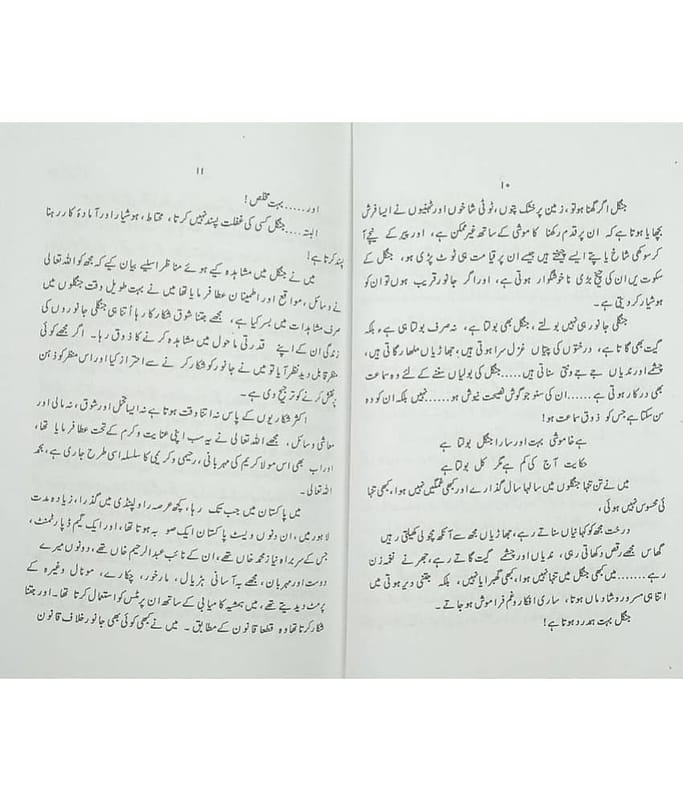 ۱۰
جنگل اگر گھنا ہو تو، زمین پر خشک پتوں، ٹوٹی شاخوں اور ٹہنیوں نے ایسا فرش
بچھایا ہوتا ہے کہ ان پر قدم رکھنا خاموشی کے ساتھ غیر ممکن ہے، اور پیر کے نیچے آ
کر سوکھی شاخ یا پتے ایسے چیختے ہیں جیسے ان پر قیامت ہی ٹوٹ پڑی ہو، جنگل کے
سکوت میں ان کی چیخ بڑی ناخوشگوار ہوتی ہے، اور اگر جانور قریب ہوں تو ان کو
ہوشیار کر دیتی ہے۔
جنگلی جانور ہی نہیں بولتے، جنگل بھی بولتا ہے، نہ صرف بولتا ہی ہے، بلکہ
گیت بھی گاتا ہے، درختوں کی پتیاں غزل سرا ہوتی ہیں، جھاڑیاں ملھار گاتی ہیں،
چشمے اور ندیاں جے جے ونتی سناتی ہیں......جنگل کی بولیاں سننے کے لئے وہ سماعت
بھی درکار ہوتی ہے......ان کی سنو جو گوش نصیحت نیوش ہو....نہیں بلکہ ان کو وہ
سن سکتا ہے جس کو ذوق سماعت ہو!
ہے خاموشی بہت اور سارا جنگل بولتا ہے
حکایت آج کی کم ہے مگر کل بولتا ہے
میں نے تن تنہا جنگلوں میں سالہا سال گذارے اور کبھی غمگین نہیں ہوا، کبھی تنہا
ئی محسوس نہیں ہوئی،
درخت مجھ کو کہانیاں سناتے رہے، جھاڑیاں مجھ سے آنکھ مچولی کھیلتی رہیں
گھاس مجھے رقص دکھاتی رہی، ندیاں اور چشمے گیت گاتے رہے، جھرنے نغمہ زن
رہے......میں کبھی جنگل میں تنہا نہیں ہوا، کبھی گھبرایا نہیں، بلکہ جتنی دیر ہوتی میں
اتنا ہی مسرور و شاداں ہوتا، ساری افکار و غم فراموش ہو جاتے۔
جنگل بہت ہمدرد ہوتا ہے!
۱۱
اور......بہت مخلص!
البتہ....جنگل کسی کی غفلت پسند نہیں کرتا، محتاط، ہوشیار اور آمادۂ کار رہنا
پسند کرتا ہے!
میں نے جنگل میں مشاہدہ کیے ہوئے مناظر اسلیے بیان کیے کہ مجھ کو اللہ تعالی
نے وسائل، مواقع اور اطمینان عطا فرمایا تھا میں نے بہت طویل وقت جنگلوں میں
صرف مشاہدات میں بسر کیا ہے، مجھے جتنا شوق شکار کا رہا اُتنا ہی جنگلی جانوروں کی
زندگی ان کے اپنے قدرتی ماحول میں مشاہدہ کرنے کا ذوق رہا۔ اگر مجھے کوئی
منظر قابل دید نظر آیا تو میں نے جانور کو شکار کرنے سے احتراز کیا اور اس منظر کو ذہن
پر نقش کرنے کو ترجیح دی ہے۔
اکثر شکاریوں کے پاس نہ اتنا وقت ہوتا ہے نہ ایسا تحمل اور شوق، نہ مالی اور
معاشی وسائل، مجھے اللہ تعالی نے یہ سب اپنی عنایت و کرم کے تحت عطا فرمایا تھا،
اور اب بھی اس مولا کریم کی مہربانی، رحیمی و کریمی کا سلسلہ اسی طرح جاری ہے، بحمد
اللہ تعالی۔
میں پاکستان میں جب تک رہا، کچھ عرصہ راولپنڈی میں گذرا، زیادہ مدت
لاہور میں، ان دونوں ویسٹ پاکستان ایک صوبہ ہوتا تھا، اور ایک گیم ڈپارٹمنٹ،
جس کے سربراہ نیاز محمد خاں تھے، ان کے نائب عبدالرحیم خاں تھے، دونوں میرے
دوست اور مہربان، مجھے بہ آسانی ہڑیال، مارخور، چکارے، مونال وغیرہ کے
پرمٹ دیدیتے تھے، میں ہمیشہ کامیابی کے ساتھ ان پرمٹس کو استعمال کرتا تھا۔ اور جتنا
شکار کرتا تھا وہ قطعاً قانون کے مطابق۔ میں نے کبھی کوئی بھی جانور خلاف قانون